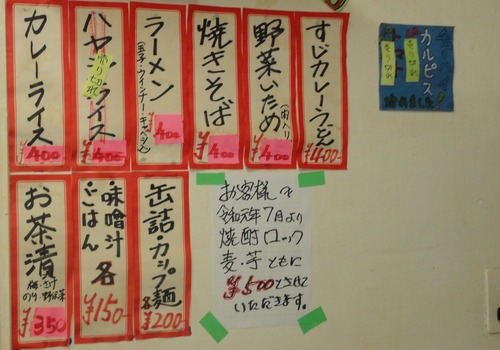 カレーライス
¥400
ハヤシライス
売り切れ
¥400
ラーメン
(玉子・ウインナー・キャベツ)
¥400
焼きそば
¥400
野菜いため
(肉入り)
¥400
すじカレーうどん
¥400-
カルピス
売り切れ
売り切れ
お茶漬
梅・さけ
のり・野沢菜
¥350
味噌汁
ごはん
各
¥150-
缶詰・カップ麺
各
¥200-
お客様へ
令和元年7月より
焼酎ロック
麦・芋ともに
¥500とさせて
いただきます。